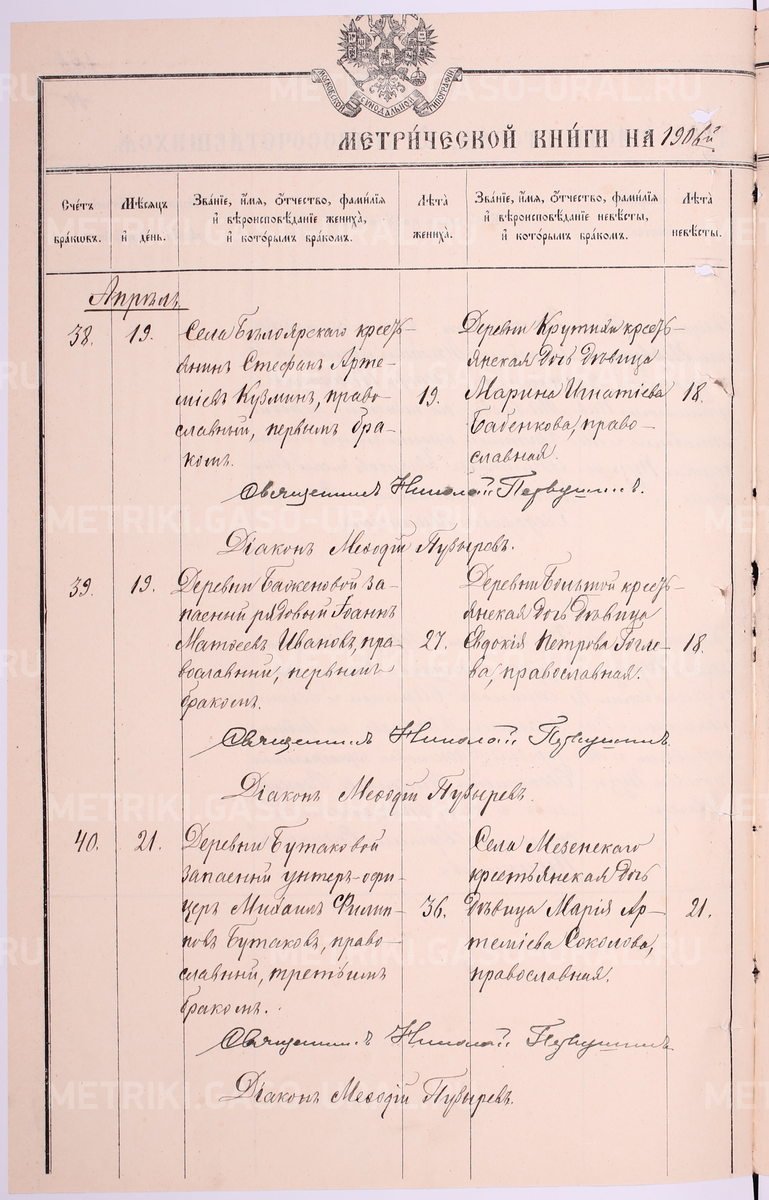 МОСКОВСКОЙ СѴНОДАЛЬНОЙ ТИПОГРАФІИ
МЕТРИ́ЧЕСКОЙ КНИ́ГИ НА 190
Сче́тъ бра́кωвъ.
Мѣ́сяцъ и҆ де́нь.
Зва́нїе, и҆́мѧ, ѻ҆́тчество, фами́лїѧ и҆ вѣроисповѣ́данїе жениха̀, и҆ кото́рымъ бра́комъ.
Лѣ́та жениха̀.
Зва́нїе, и҆́мѧ, ѻ҆́тчество, фами́лїѧ и҆ вѣроисповѣ́данїе невѣ́сты, и҆ кото́рымъ бра́комъ.
Лѣ́та невѣ́сты.
Апрѣль
38.
19.
Села Бѣлоярскаго кресть-
янинъ Стефанъ Арте-
міевъ Кузминъ, право-
славный, первымъ бра-
комъ.
19.
Деревни Крутихи кресть-
янская дочь дѣвица
Марина Игнатіева
Бабенкова, право-
славная.
18.
Священникъ Николай Первушинъ.
Діаконъ Меѳодій Пузыревъ.
39.
19.
Деревни Баженовой за-
пасный рядовый Іоаннъ
Матѳеевъ Ивановъ, пра-
вославный, первымъ
бракомъ.
27.
Деревни Большой кресть-
янская дочь дѣвица
Евдокія Петрова
ва, православная.
18.
Священникъ Николай Первушинъ
Діаконъ Меѳодій Пузыревъ.
40.
21.
Деревни Бутаковой
запасный унтеръ-офи-
церъ Михаилъ Филип-
повъ Бутаковъ, право-
славный, третьимъ
бракомъ.
36.
Села Мезенскаго
крестьянская дочь
дѣвица Марія Ар-
теміева Соколова,
православная.
21.
Священникъ Николай Первушинъ
Діаконъ Меѳодій Пузыревъ.
METRIKI.GASO-URAL.RU